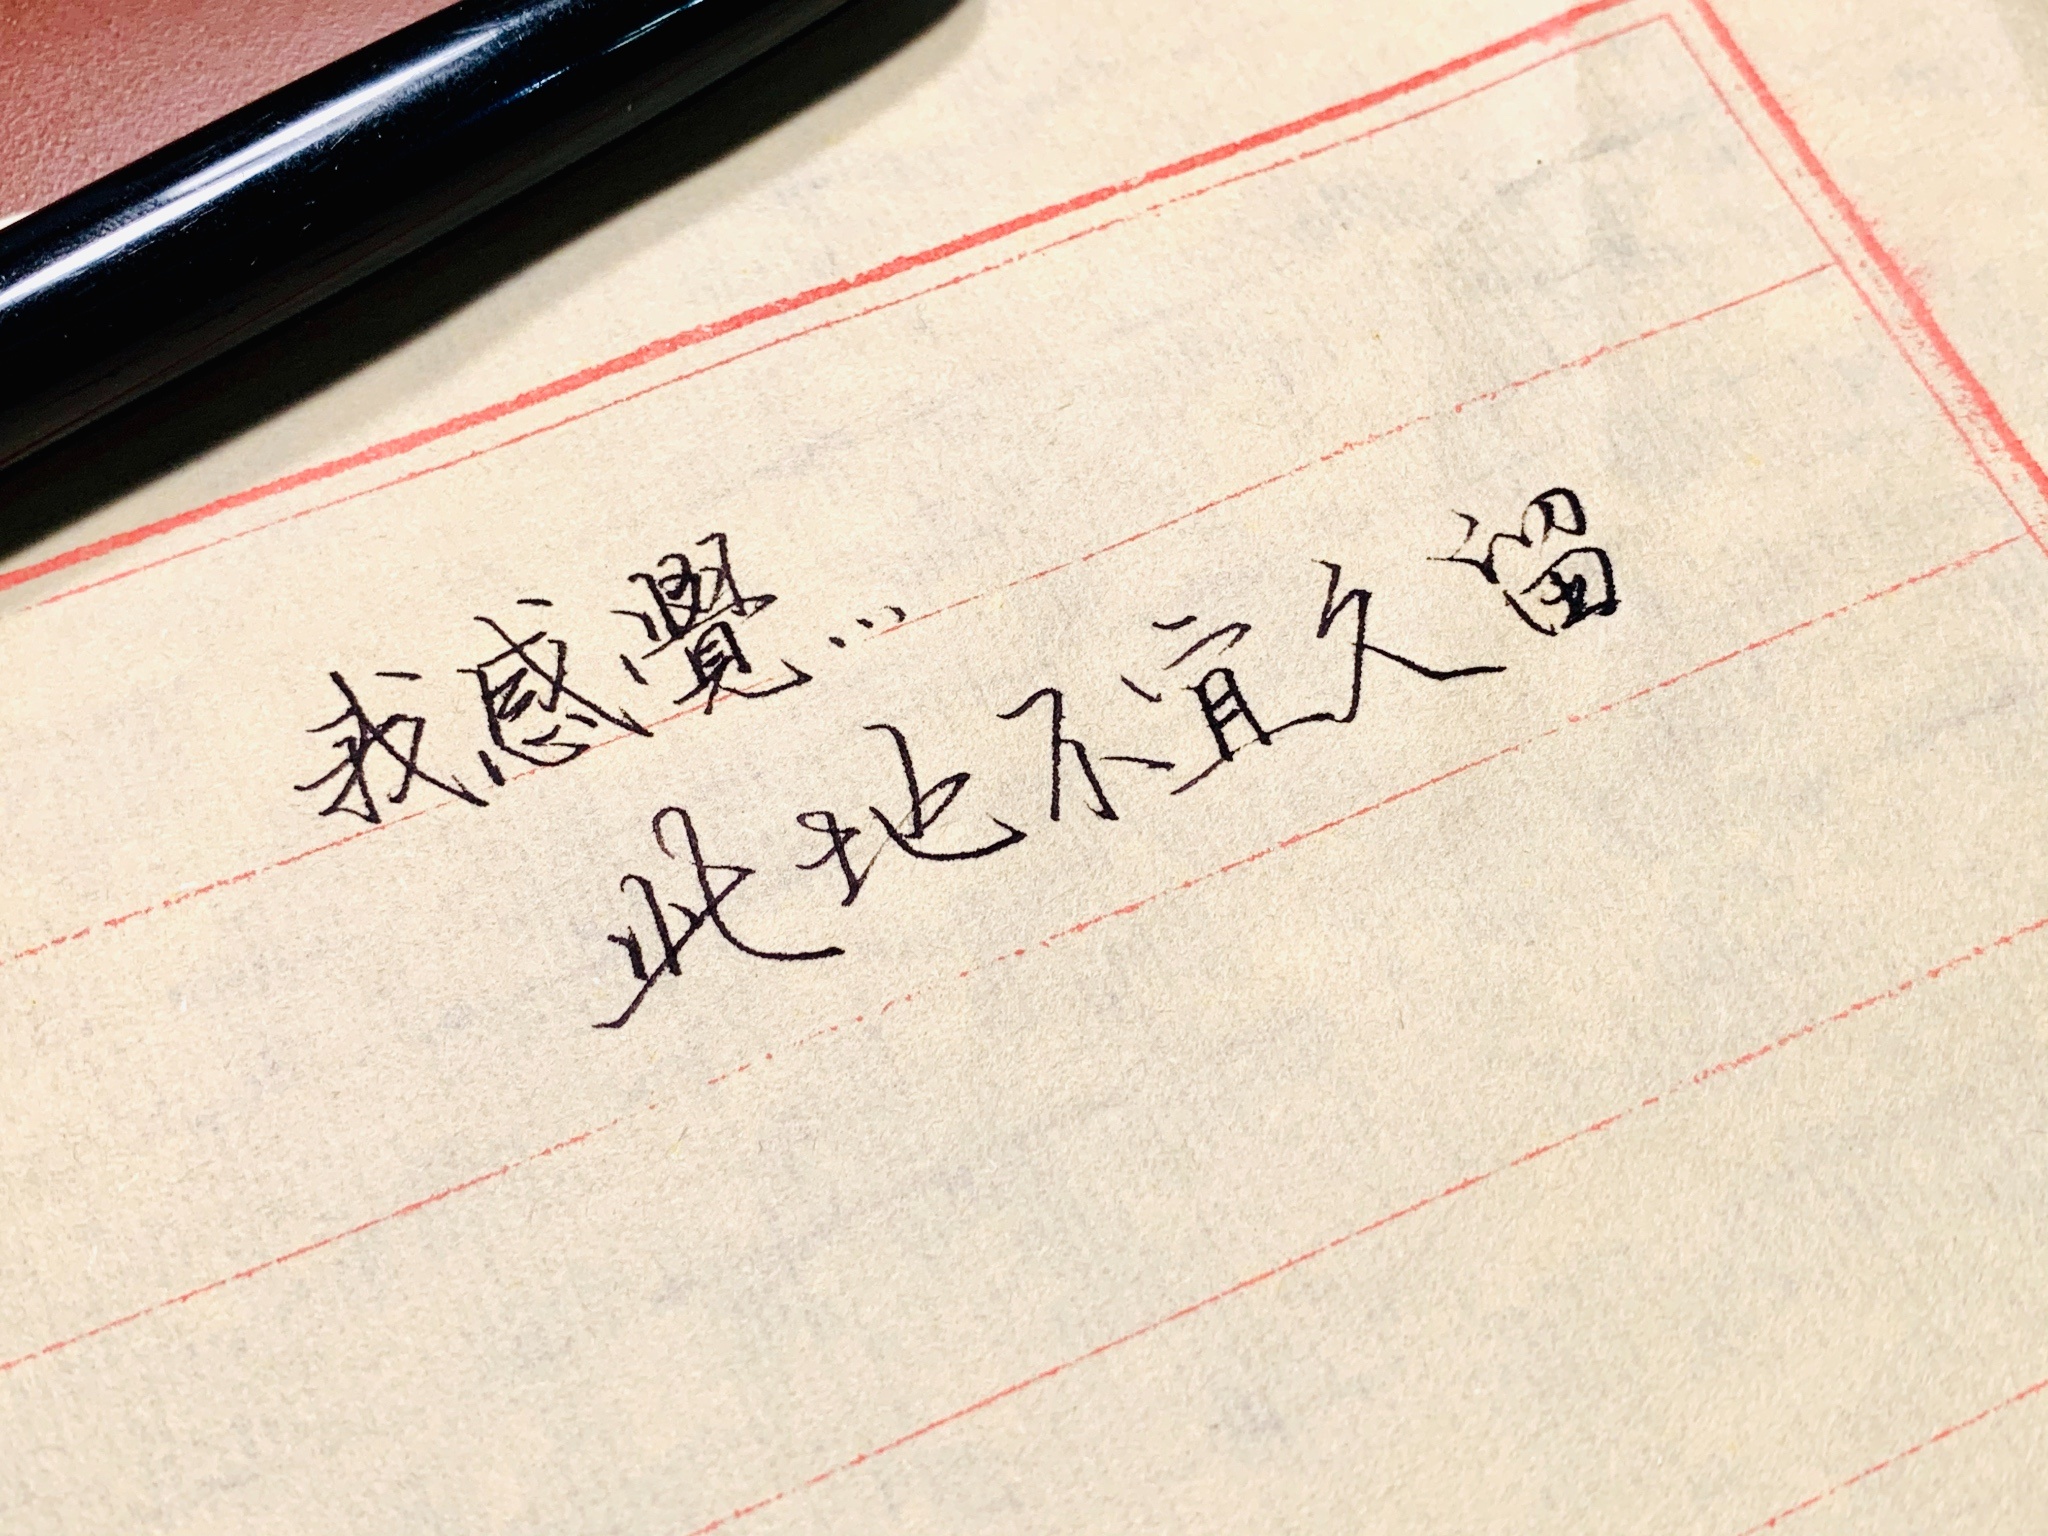 我感覺…
此地不宜久留